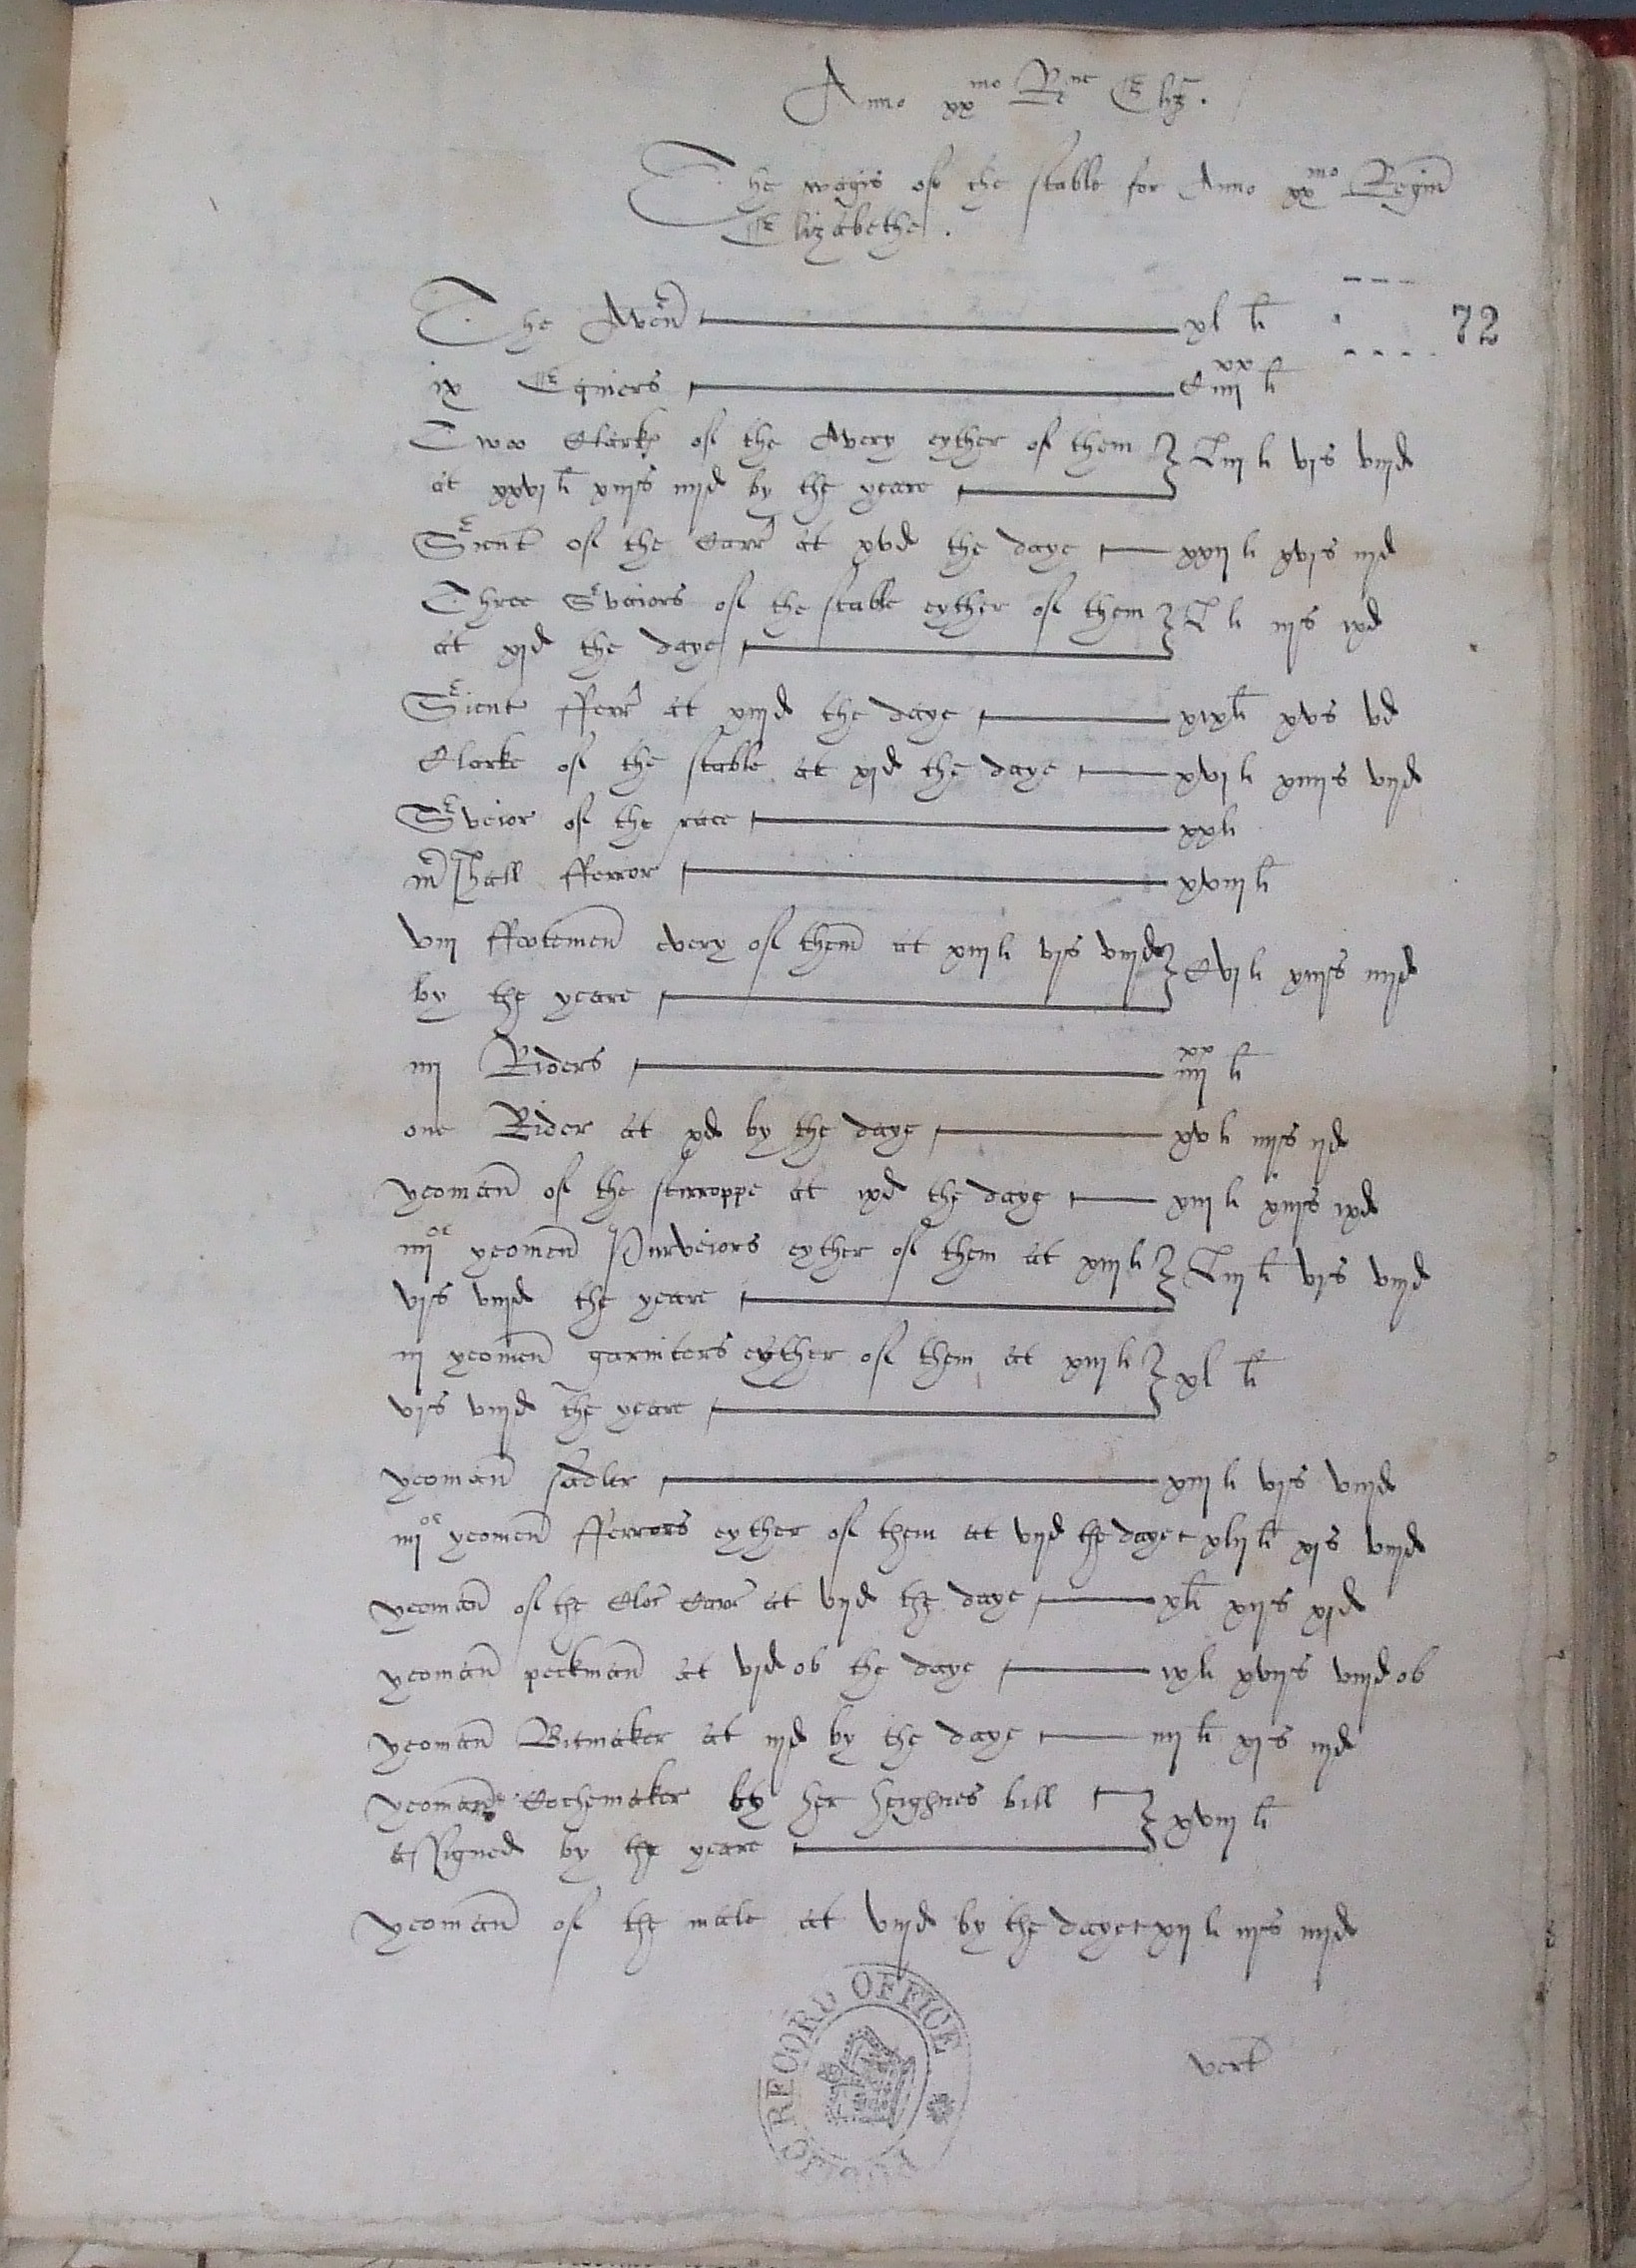 Anno xx^mo R^ne Eliz.
The wagis of the stable for Anno xx^mo Regin
Elizabethe.
The Aven^r xl li
72
ix Equiers C iiij^xx li
Twoo Clarkes of the Avery eyther of them
at xxvj li xiijs iiijd by the yeare Liij li vjs viijd
Sient of the Carr at xvd the daye xxij li xvjs iijd
Three Sveiors of the stable eyther of them
at xjd the daye L li iijs ixd
Sient fferr at xiijd the daye xix li xvs vd
Clarke of the stable at xjd the daye xvj li xiiijs vijd
Sveior of the race xx li
mshall fferror xviij li
viij ffootemen every of them at xiij li vjs viijd
by the yeare Cvj li xiijs iiijd
iiij Riders iiij^xx li
one Rider at xd by the daye xv li iiijs ijd
yeoman of the stirroppe at ixd the daye xiij li xiijs ixd
iiij^or yeomen Purveiors eyther of them at xiij li
vjs viijd the yeare Liij li vjs viijd
iij yeomen garniters eyther of them at xiij li
vjs viijd the yeare xl li
yeoman sadler xiij li vjs viijd
iiij^or yeomen fferrors eyther of them at vijd the daye xlij li xjs viijd
yeoman of the Clos Carr at vijd the daye x li xijs xjd
yeoman peckman at vjd ob the daye ix li xvijs viijd ob
yeoman Bitmaker at iijd by the daye iiij li xjs iijd
yeoman Cochemaker by her heighnes bill
assigned by the yeare xviij li
yeoman of the male at viijd by the daye xij li iijs iiijd
vert
PUBLIC RECORD OFFICE